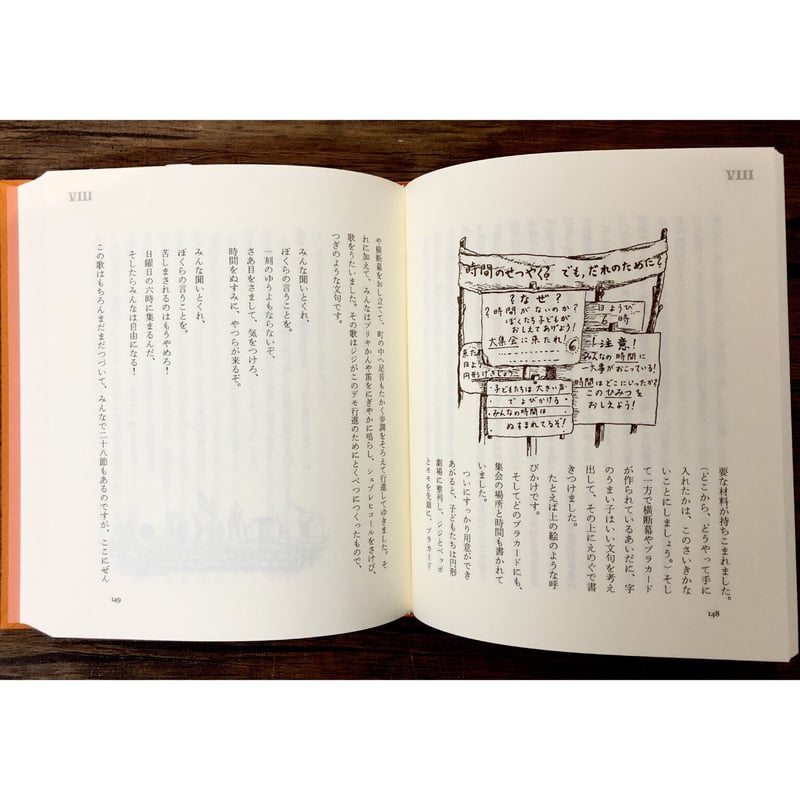 VIII
時間のせつやく? でも,だれのために?
?なぜ?
?時間がないのか?
ぼくたち子どもが
おしえてあげよう!
大集会に来たれ!
日ようび
6時
!注意!
みんなの時間に
一大事がおこっている!
時間はどこにいったか?
このひみつを
おしえよう!
来た
日よう
円形げきじょう
・子どもたちは大きい声
でよびかける
・みんなの時間は
ぬすまれてるぞ!
要な材料が持ちこまれました。
(どこから、どうやって手に
入れたかは、このさいきかな
いことにしましょう。)そし
て一方で横断幕やプラカード
が作られているあいだに、字
のうまい子はいい文句を考え
出して、その上にえのぐで書
きつけました。
たとえば上の絵のような呼
びかけです。
そしてどのプラカードにも、
集会の場所と時間も書かれて
いました。
ついにすっかり用意ができ
あがると、子どもたちは円形
劇場に整列し、ジジとベッポ
とモモを先頭に、プラカード
148
VIII
や横断幕をおし立てて、町の中へ足音もたかく歩調をそろえて行進してゆきました。そ
れに加えて、みんなはブリキかんや笛をにぎやかに鳴らし、シュプレヒコールをさけび、
歌をうたいました。その歌はジジがこのデモ行進のためにとくべつにつくったもので、
つぎのような文句です。
みんな聞いとくれ、
ぼくらの言うことを。
一刻のゆうよもならないぞ、
さあ目をさまして、気をつけろ、
時間をぬすみに、やつらが来るぞ。
みんな聞いとくれ、
ぼくらの言うことを。
苦しまされるのはもうやめろ!
日曜日の六時に集まるんだ、
そしたらみんなは自由になる!
この歌はもちろんまだまだつづいて、みんなで二十八節もあるのですが、ここにぜん
149